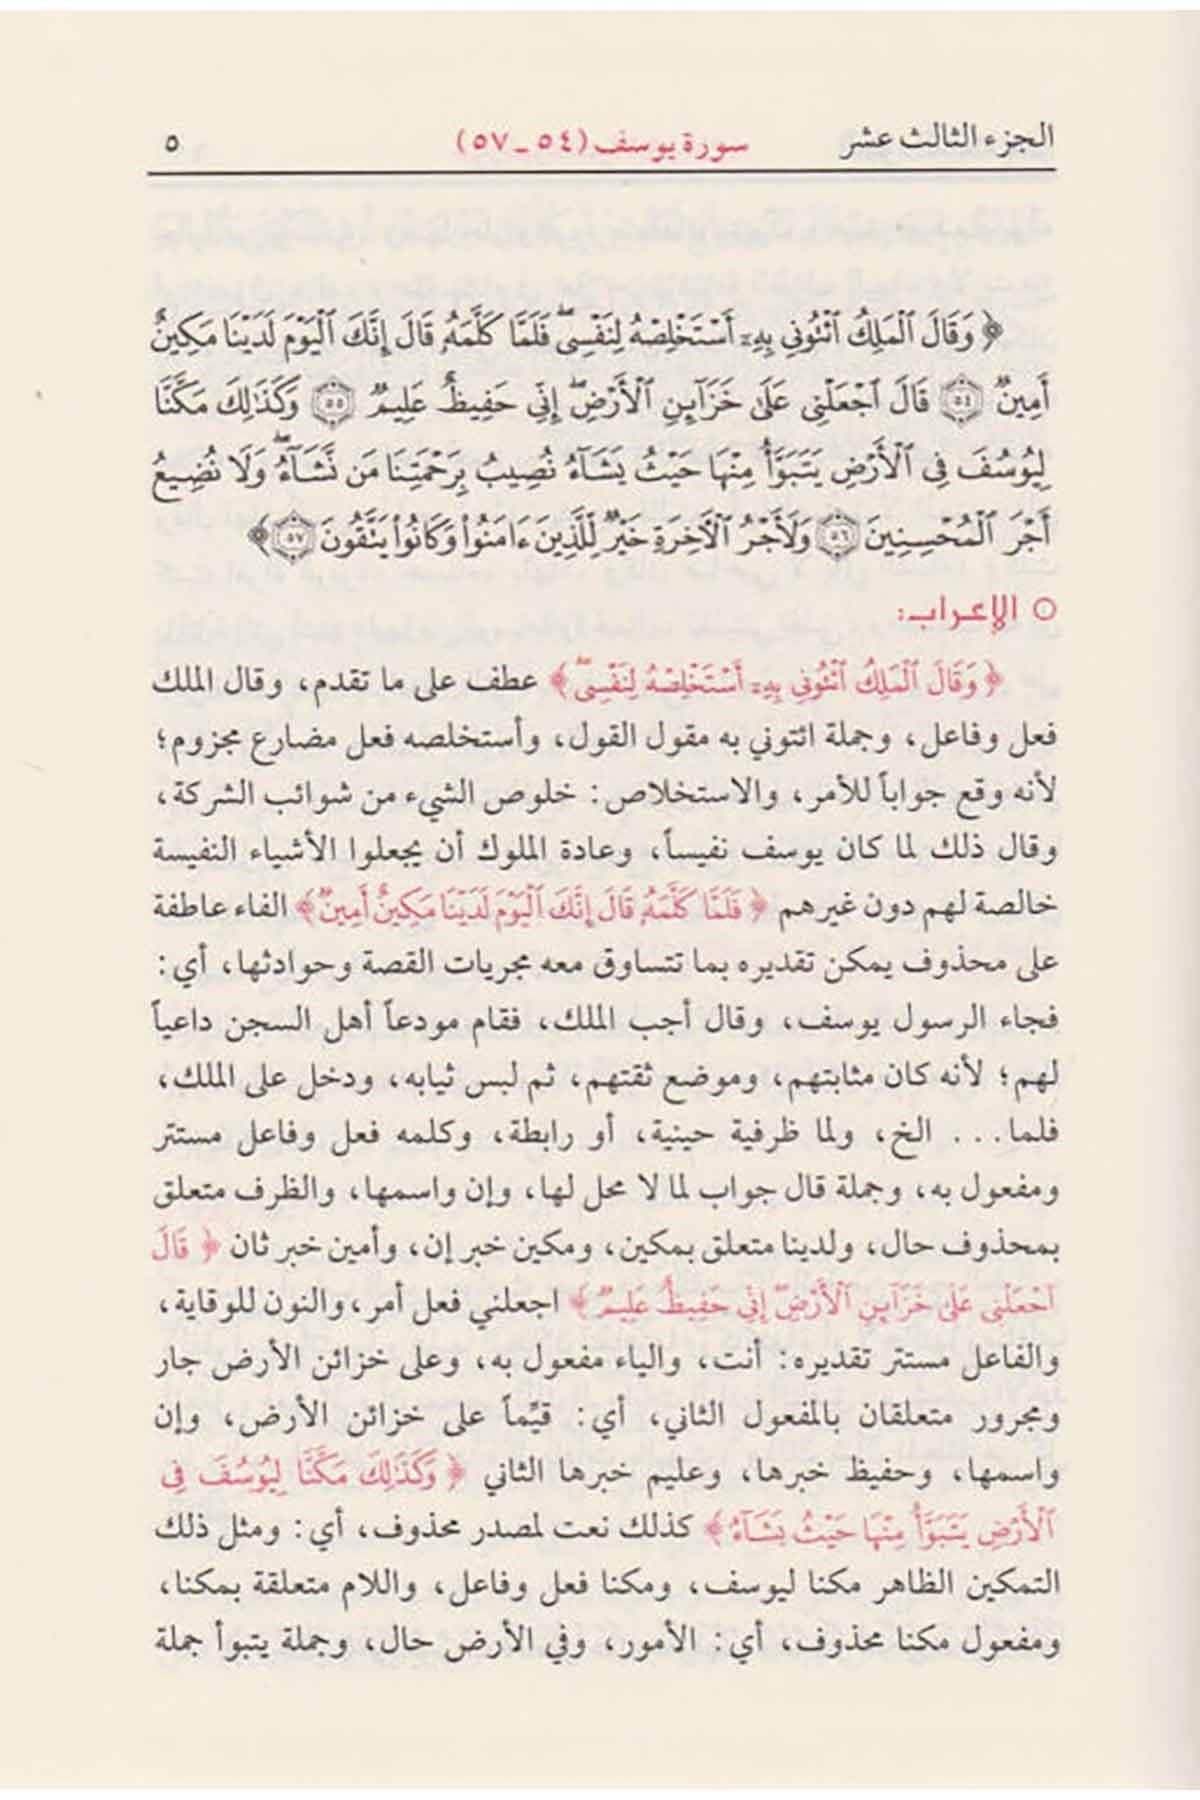 الجزء الثالث عشر سورة يوسف (٥٤ ـ ٥٧) ٥
﴿ وَقَالَ ٱلْمَلِكُ ٱئْتُونِي بِهِۦٓ أَسْتَخْلِصْهُ لِنَفْسِىۖ فَلَمَّا كَلَّمَهُۥ قَالَ إِنَّكَ ٱلْيَوْمَ لَدَيْنَا مَكِينٌ
أَمِينٌ ٥٤ قَالَ ٱجْعَلْنِى عَلَىٰ خَزَآئِنِ ٱلْأَرْضِۖ إِنِّى حَفِيظٌ عَلِيمٌ ٥٥ وَكَذَٰلِكَ مَكَّنَّا
لِيُوسُفَ فِى ٱلْأَرْضِ يَتَبَوَّأُ مِنْهَا حَيْثُ يَشَآءُ نُصِيبُ بِرَحْمَتِنَا مَن نَّشَآءُۖ وَلَا نُضِيعُ
أَجْرَ ٱلْمُحْسِنِينَ ٥٦ وَلَأَجْرُ ٱلْءَاخِرَةِ خَيْرٌ لِّلَّذِينَ ءَامَنُوا۟ وَكَانُوا۟ يَتَّقُونَ ٥٧ ﴾
○ الإعراب:
﴿ وَقَالَ ٱلْمَلِكُ ٱئْتُونِي بِهِۦٓ أَسْتَخْلِصْهُ لِنَفْسِىۖ ﴾ عطف على ما تقدم، وقال الملك
فعل وفاعل، وجملة ائتوني به مقول القول، وأستخلصه فعل مضارع مجزوم؛
لأنه وقع جواباً للأمر، والاستخلاص: خلوص الشيء من شوائب الشركة،
وقال ذلك لما كان يوسف نفيساً، وعادة الملوك أن يجعلوا الأشياء النفيسة
خالصة لهم دون غيرهم ﴿ فَلَمَّا كَلَّمَهُۥ قَالَ إِنَّكَ ٱلْيَوْمَ لَدَيْنَا مَكِينٌ أَمِينٌ ﴾ الفاء عاطفة
على محذوف يمكن تقديره بما تتساوق معه مجريات القصة وحوادثها، أي:
فجاء الرسول يوسف، وقال أجب الملك، فقام مودعاً أهل السجن داعياً
لهم؛ لأنه كان مثابتهم، وموضع ثقتهم، ثم لبس ثيابه، ودخل على الملك،
فلما... الخ، ولما ظرفية حينية، أو رابطة، وكلمه فعل وفاعل مستتر
ومفعول به، وجملة قال جواب لما لا محل لها، وإن واسمها، والظرف متعلق
بمحذوف حال، ولدينا متعلق بمكين، ومكين خبر إن، وأمين خبر ثان ﴿ قَالَ
ٱجْعَلْنِى عَلَىٰ خَزَآئِنِ ٱلْأَرْضِۖ إِنِّى حَفِيظٌ عَلِيمٌ ﴾ اجعلني فعل أمر، والنون للوقاية،
والفاعل مستتر تقديره: أنت، والياء مفعول به، وعلى خزائن الأرض جار
ومجرور متعلقان بالمفعول الثاني، أي: قيِّماً على خزائن الأرض، وإن
واسمها، وحفيظ خبرها، وعليم خبرها الثاني ﴿ وَكَذَٰلِكَ مَكَّنَّا لِيُوسُفَ فِى
ٱلْأَرْضِ يَتَبَوَّأُ مِنْهَا حَيْثُ يَشَآءُ ﴾ كذلك نعت لمصدر محذوف، أي: ومثل ذلك
التمكين الظاهر مكنا ليوسف، ومكنا فعل وفاعل، واللام متعلقة بمكنا،
ومفعول مكنا محذوف، أي: الأمور، وفي الأرض حال، وجملة يتبوأ جملة